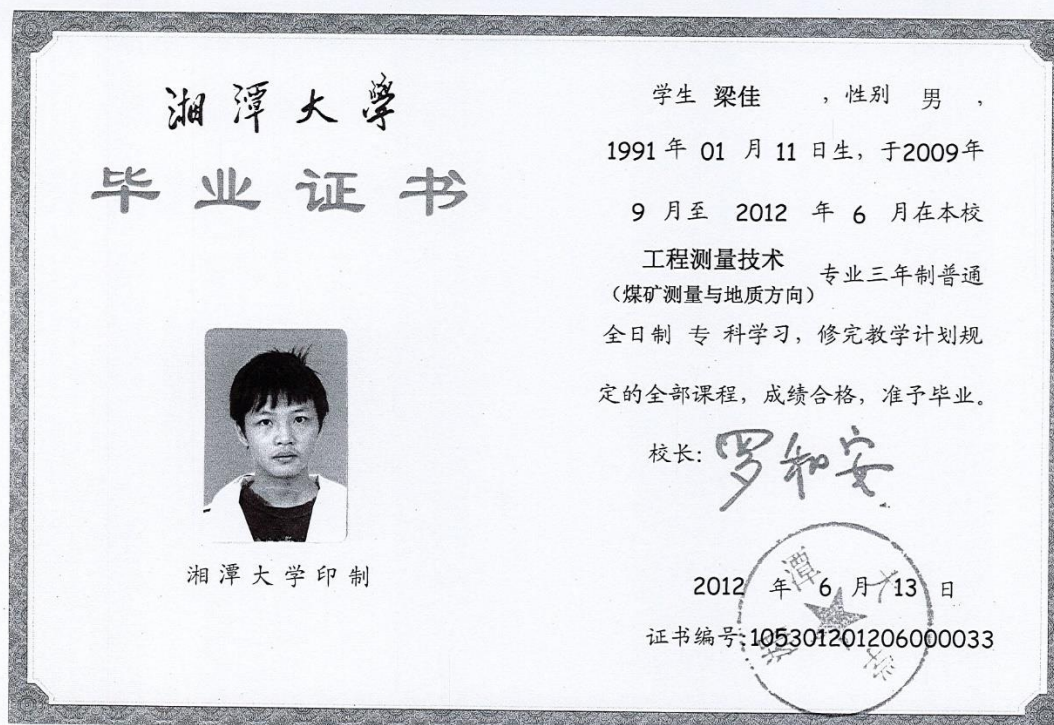 湘潭大學
毕业证书
湘潭大学印制
学生 梁佳 ，性别 男 ，
1991 年 01 月 11 日生，于2009年
9 月至 2012 年 6 月在本校
工程测量技术
（煤矿测量与地质方向）
专业三年制普通
全日制 专 科学习，修完教学计划规
定的全部课程，成绩合格，准予毕业。
校长：罗和安
2012 年 6 月 13 日
证书编号:105301201206000033
湘潭大学